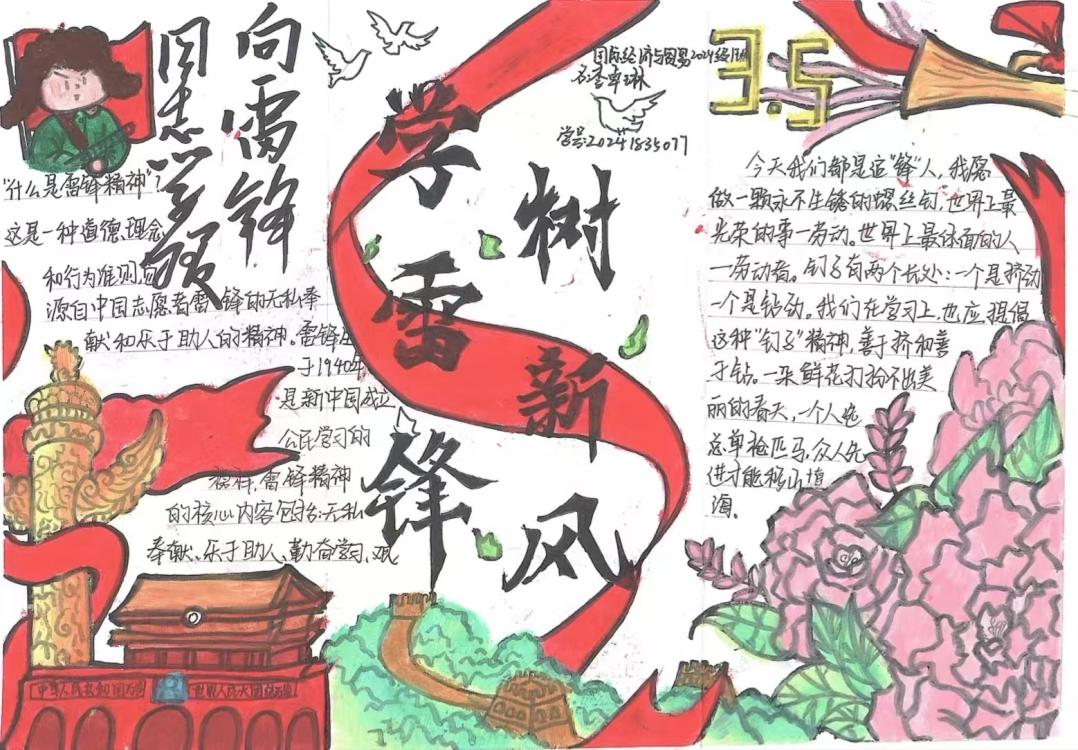 向雷锋
同志学
学雷锋
树新风
国际经济与贸易2024级
学号:20241835077
3.5
"什么是雷锋精神"?
这是一种道德、理念
和行为准则,
源自中国志愿者雷锋的无私奉
献和乐于助人的精神。雷锋
于1940年
是新中国成立
公民学习的
榜样,雷锋精神
的核心内容包括:无私
奉献、乐于助人、勤奋学习、艰
中华人民共和国万岁
世界人民大团结万岁
今天我们都是追"锋"人,我愿
做一颗永不生锈的螺丝钉,世界上最
光荣的事—劳动。世界上最体面的人
—劳动者。钉子有两个长处:一个是挤动
一个是钻动。我们在学习上,也应提倡
这种"钉子"精神,善于挤和善
于钻。一朵鲜花打扮不出美
丽的春天,一个人先
总单枪匹马,众人先
进才能移山填
海。